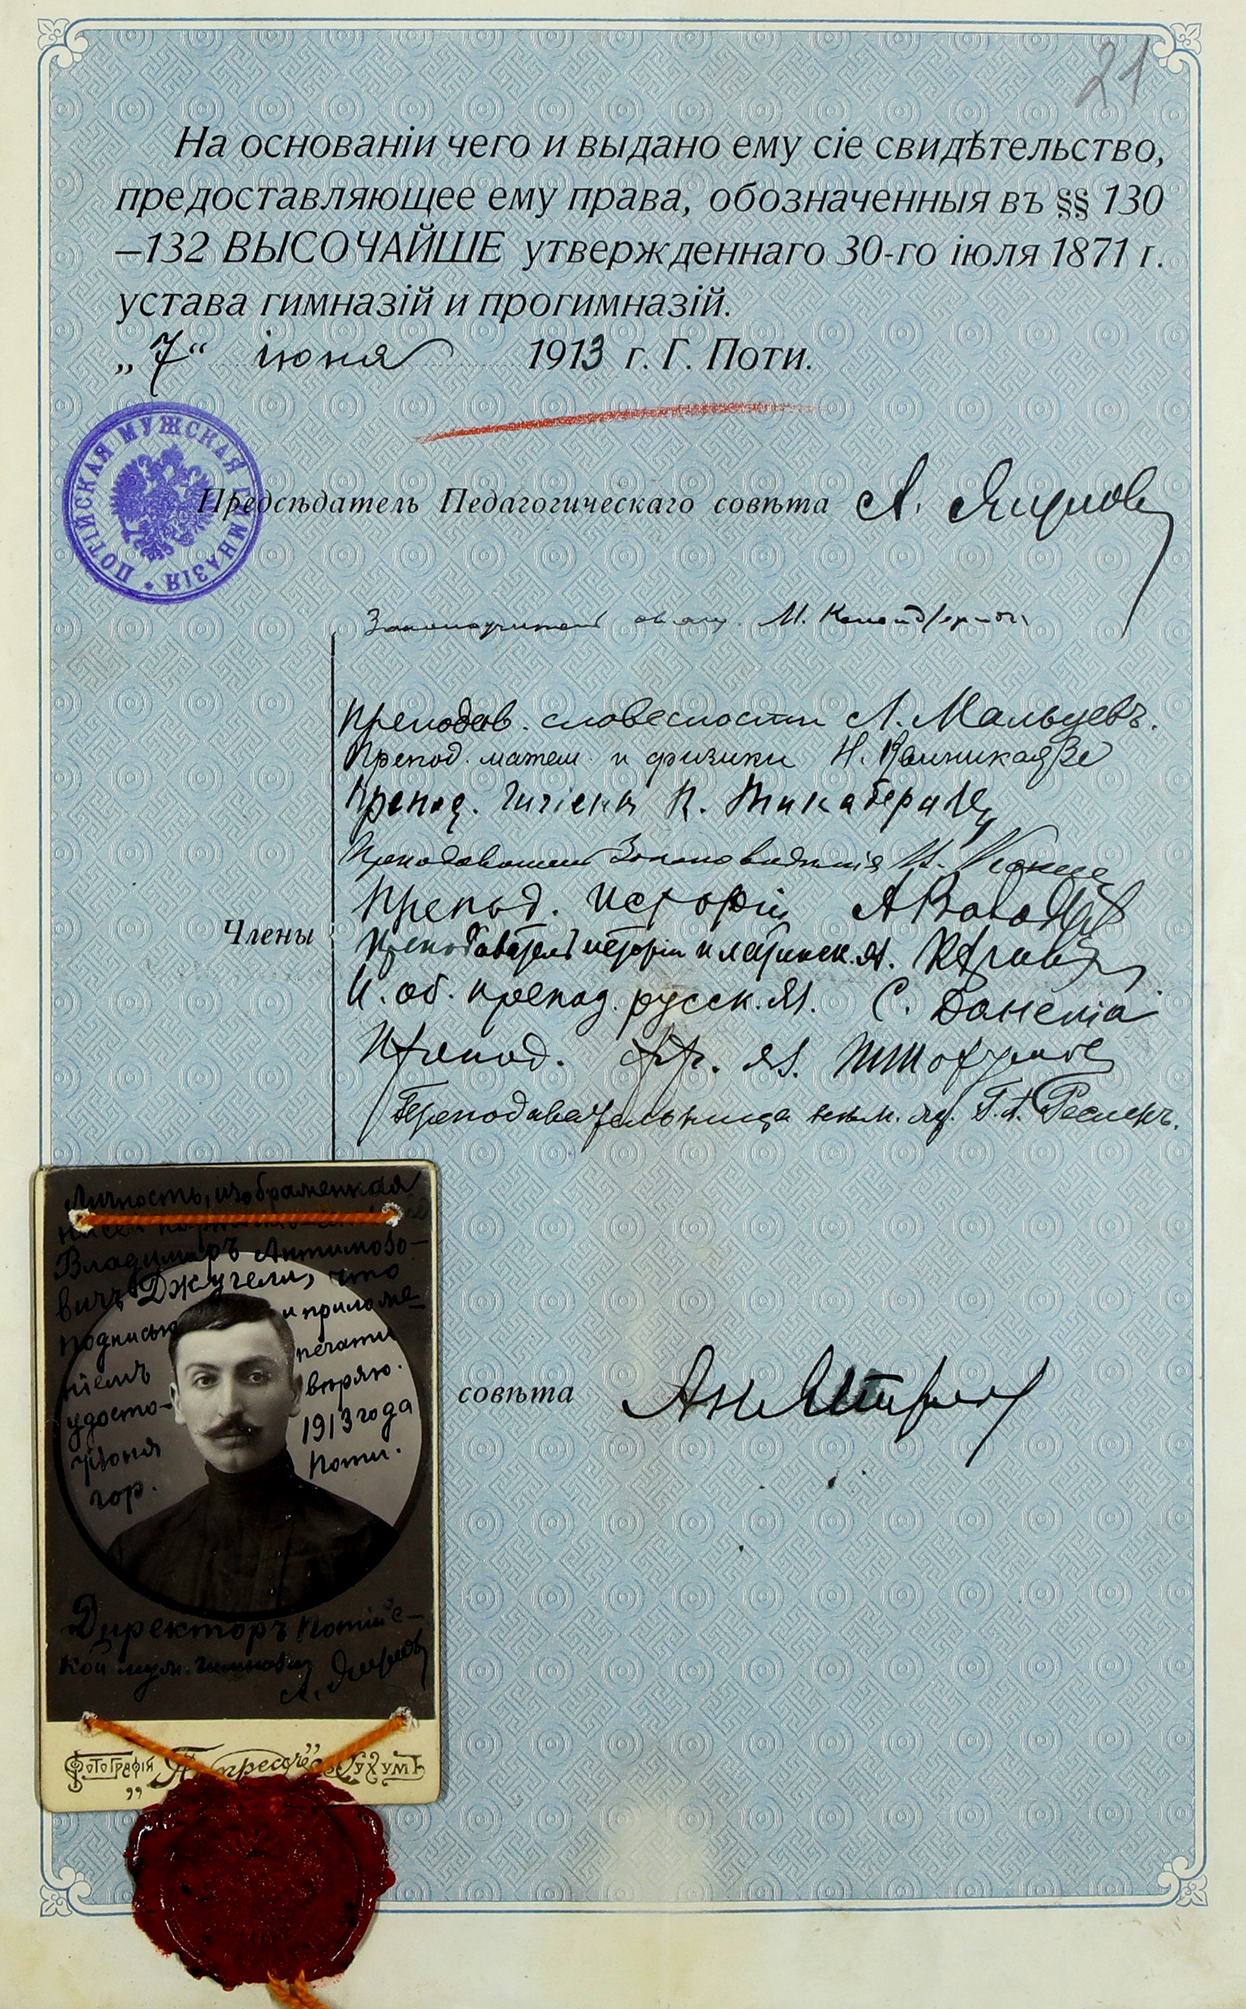 21
На основаніи чего и выдано ему сіе свидѣтельство,
предоставляющее ему права, обозначенныя въ §§ 130
—132 ВЫСОЧАЙШЕ утвержденнаго 30-го іюля 1871 г.
устава гимназій и прогимназій.
„7“ іюня 1913 г. Г. Поти.
ПОТІЙСКАЯ МУЖСКАЯ ГИМНАЗІЯ
Предсѣдатель Педагогическаго совѣта А.
Законоучитель свящ. М.
Преподав. словесности Л. Мальцевъ.
Препод. матем. и физики Н.
Препод. Гигіены
Преподаватель Законовѣдѣнія
Препод. Исторіи А
Члены
Преподаватель исторіи и латинск. яз.
И. об. препод. русск. яз. С.
Препод. фр. яз.
Преподавательница нѣм. яз. Г. А. Реслеръ.
Личность, изображенная
на сей карточкѣ
Владимиръ Антимозо-
вичъ Джугели, что
подписью и приложе-
ніемъ печати
удосто- вѣряю.
Іюня 1913 года
гор. Поти.
совѣта
Директоръ Потійс-
кой муж. гимназіи
А.
Фотографія „Экспрессъ“ Сухумъ